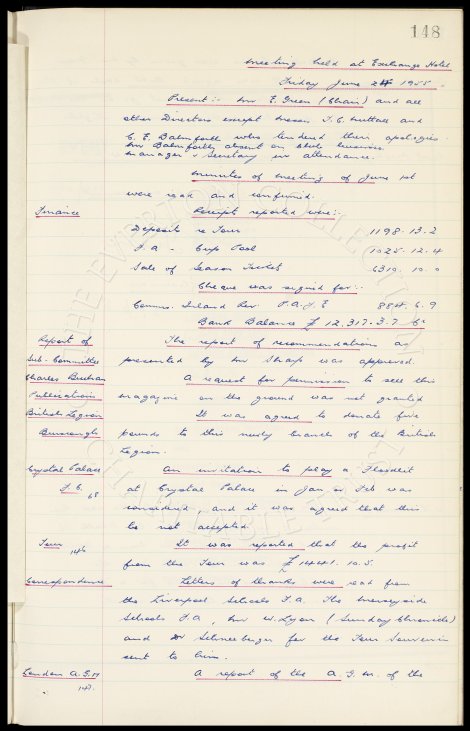 148
Meeting held at Exchange Hotel
Friday June 24 1955.
Present:- Mr E. Green (Chair) and all
other Directors except Messrs T. C. Nuttall and
C. E. Balmforth who tendered their apologies.
Mr Balmforth absent on club business.
Manager & Secretary in attendance.
Minutes of meeting of June 1st
were read and confirmed.
Finance Receipts reported were:-
Deposits re Tour 1198. 13. 2
F.A. - Cup Pool 1025. 12. 4
Sale of Season Tickets 6319. 10. 0
Cheque was signed for:-
Comms. Inland Rev. P.A.Y.E 884. 6. 9
Bank Balance £ 12,317. 3. 7 Cr
Report of The report of recommendations as
Sub-Committee presented by Mr Sharp was approved.
Charles Buchan A request for permission to sell this
Publications magazine on the ground was not granted
British Legion It was agreed to donate five
pounds to this newly branch of the British
Legion.
Crystal Palace An invitation to play a Floodlit
F.C. 68 at Crystal Palace in Jan or Feb was
considered, and it was agreed that this
be not accepted.
Tour 146 It was reported that the profit
from the Tour was £ 1441. 10. 5.
Correspondence Letters of thanks were read from
the Liverpool Schools F.A, The Merseyside
Schools F.A, Mr W. Lyon (Sunday Chronicle)
and Dr Schneeberger for the Tour Souvenir
sent to him.
London A.G.M A report of the A.G.M. of the
147.
THE EVERTON COLLECTION
CHARITABLE TRUST